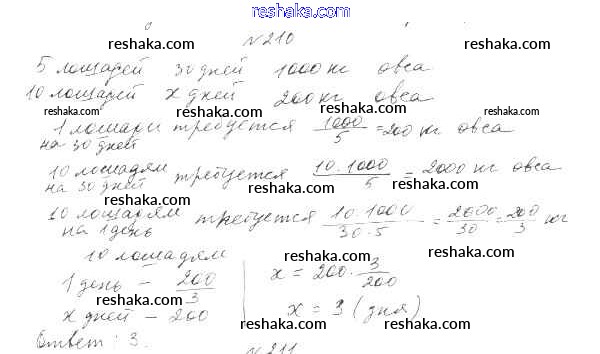 reshaka.com
№210
reshaka.com reshaka.com
5 лошадей 30 дней 1000 кг овса
10 лошадей x дней 200 кг овса
reshaka.com reshaka.com reshaka.com
1 лошади требуется 1000/5 = 200 кг овса
на 30 дней
reshaka.com reshaka.com
10 лошадям требуется 10·1000/5 = 2000 кг овса
на 30 дней
reshaka.com reshaka.com
10 лошадям требуется 10·1000/30·5 = 2000/30 = 200/3 кг
на 1 день
reshaka.com reshaka.com reshaka.com
10 лошадям
1 день – 200/3
x = 200·3/200
reshaka.com reshaka.com
x дней – 200
x = 3 (дня)
reshaka.com reshaka.com
Ответ: 3.
№211
reshaka.com